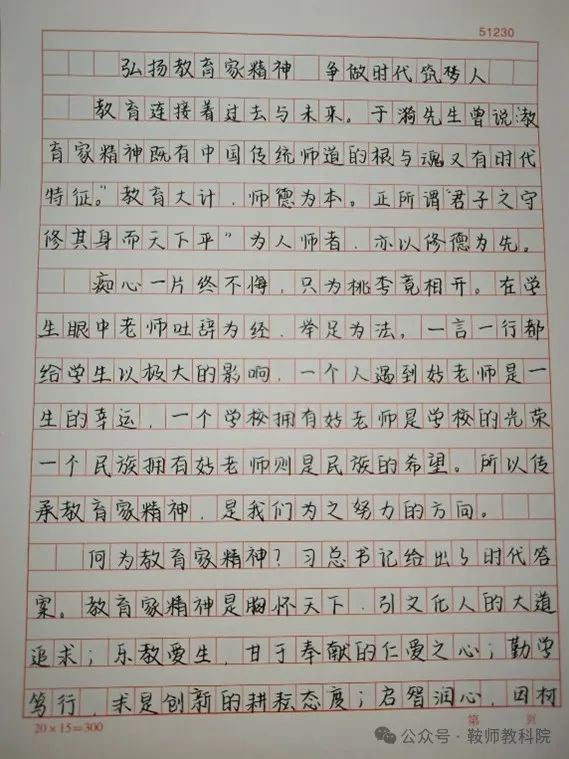 51230
弘扬教育家精神 争做时代筑梦人
教育连接着过去与未来。于漪先生曾说:"教
育家精神既有中国传统师道的根与魂又有时代
特征。"教育大计,师德为本。正所谓"君子之守
修其身而天下平"为人师者,亦以修德为先。
痴心一片终不悔,只为桃李竟相开。在学
生眼中老师吐辞为经,举足为法,一言一行都
给学生以极大的影响,一个人遇到好老师是一
生的幸运,一个学校拥有好老师是学校的光荣
一个民族拥有好老师则是民族的希望。所以传
承教育家精神,是我们为之努力的方向。
何为教育家精神?习总书记给出了时代答
案。教育家精神是胸怀天下,引文化人的大道
追求;乐教爱生,甘于奉献的仁爱之心;勤学
笃行,求是创新的耕耘态度;启智润心,因柯
20×15=300 第 页
公众号·鞍师教科院